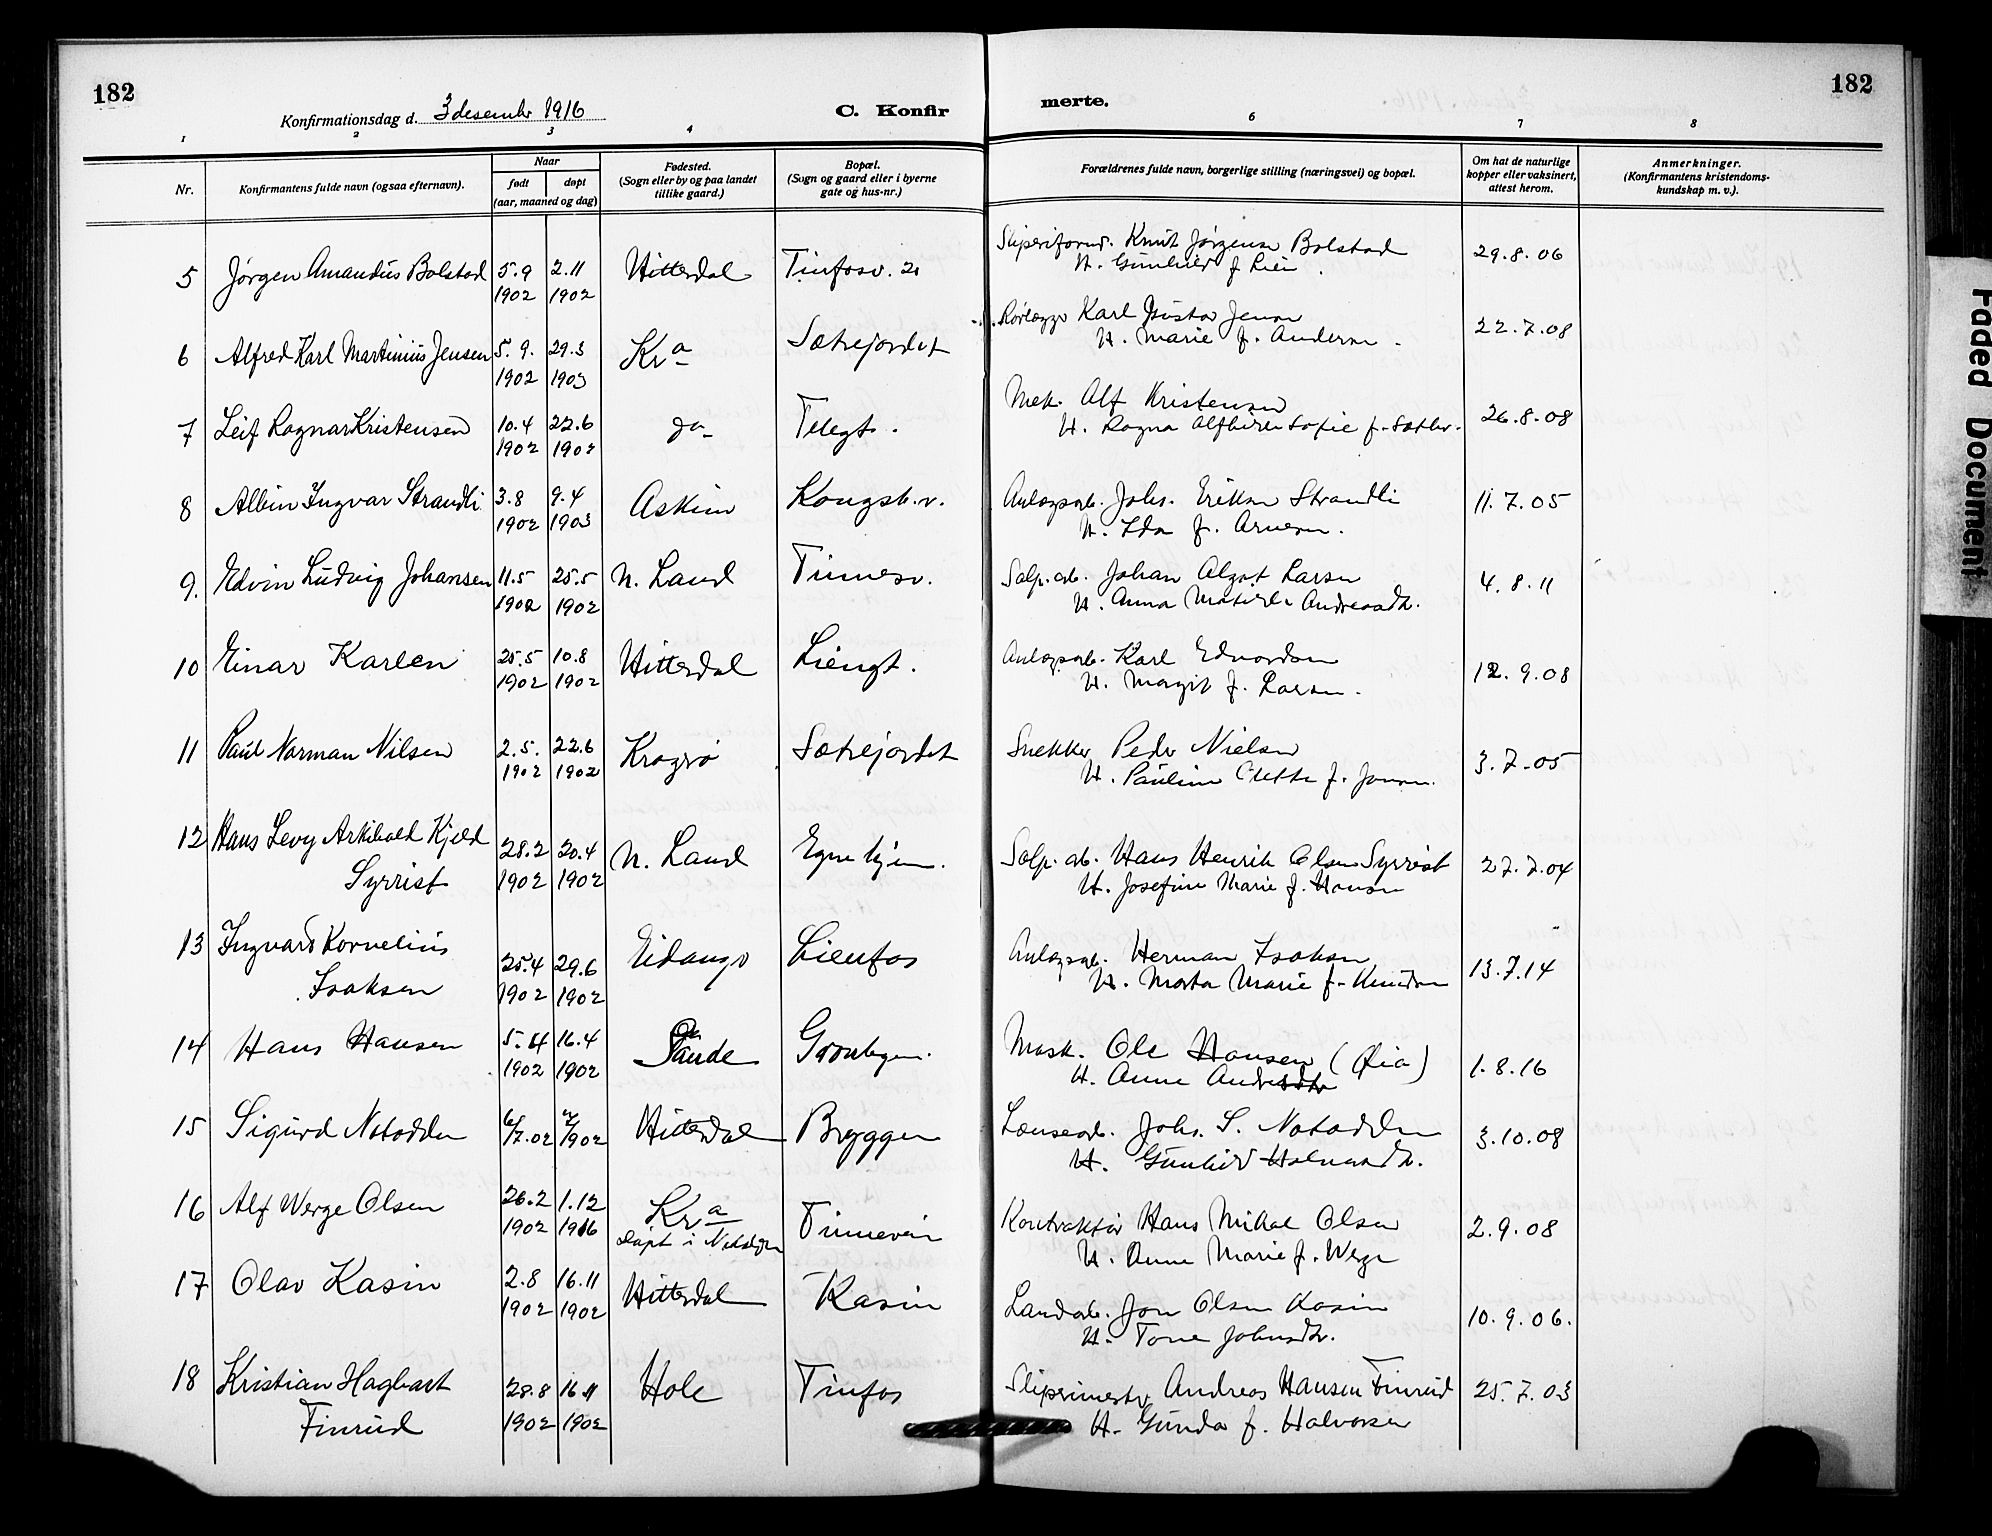 182
182
Konfirmationsdag d. 3 desember 1916
C. Konfir
merte.
1 2 3 4 6 7 8
Nr.
Konfirmantens fulde navn (ogsaa efternavn).
Naar
født døpt
(aar, maaned og dag)
Fødested.
(Sogn eller by og paa landet
tillike gaard.)
Bopæl.
(Sogn og gaard eller i byerne
gate og hus-nr.)
Forældrenes fulde navn, borgerlige stilling (næringsvei) og bopæl.
Om hat de naturlige
kopper eller vaksinert,
attest herom.
Anmerkninger.
(Konfirmantens kristendoms-
kundskap m. v.).
5 Jørgen Amandus Bolstad 5.9 2.11 Hitterdal Tinfosv. 20 Sliperiformd. Knut Jørgensen Bolstad 29.8.06
1902 1902 H. Gunhild f. Lien
6 Alfred Karl Martinius Jensen 5.9. 29.3 Kra Sætrejordet Rørlægger Karl Gustav Jensen 22.7.08
1902 1903 H. Marie f. Andersen.
7 Leif Ragnar Kristensen 10.4 22.6 do Telegt. Mek. Alf Kristensen 26.8.08
1902 1902 H. Ragna Alfhilde Sofie f. Sæther.
8 Albin Ingvar Strandli 3.8 9.4 Askim Kongsb.v. Anlægsarb. Johs. Eriksen Strandli 11.7.05
1902 1903 H. Ida f. Arnesen.
9. Edvin Ludvig Johansen 11.5 25.5 N. Land Tinnesv. Salp.arb. Johan Algot Larsen 4.8.11
1902 1902 H. Anna Matilde Andreasdtr.
10 Einar Karlsen 25.5 10.8 Hitterdal Liengt. Anlægsarb. Karl Edvardsen 12.9.08
1902 1902 H. Margit f. Larsen.
11 Paul Norman Nilsen 2.5. 22.6 Kragerø Sætrejordet Snekker Peder Nielsen 3.7.05
1902 1902 H. Pauline Otette f. Jonsen.
12 Hans Levy Arkibald Kjeld 28.2 20.4 N. Land Egne hjem. Salp. arb. Hans Henrik Olsen Syrrist 27.7.04
Syrrist 1902 1902 H. Josefine Marie f. Hansen
13 Ingvard Kornelius 25.4 29.6 Eidanger Lienfos Anlægsarb. Herman Isaksen 13.7.14
Isaksen 1902 1902 H. Marta Marie f. Knudsen
14 Hans Hansen 5.4 16.4 Sande Grønbyen. Mask. Ole Hansen (Øia) 1.8.16
1902 1902 H. Anne Andersdtr
15 Sigurd Notodden 6/7.02 /1902 Hitterdal Bryggen Lensearb. Johs. S. Notodden 3.10.08
H. Gunhild Halvorsdtr.
16 Alf Werge Olsen 26.2 1.12 Kra Tinneveien Kontraktør Hans Mikal Olsen 2.9.08
1902 1916 Døpt i Notodden H. Anne Marie f. Werge
17 Olav Kasin 2.8 16.11 Hitterdal Kasin Landarb. Jon Olsen Kasin 10.9.06.
1902 1902 H. Tone Johnsdtr.
18 Kristian Hagbart 28.8 16.11 Hole Tinfos Sliperimester Andreas Hansen Finrud 25.7.03
Finrud 1902 1902 H. Gunda f. Halvorsen
Faded Document